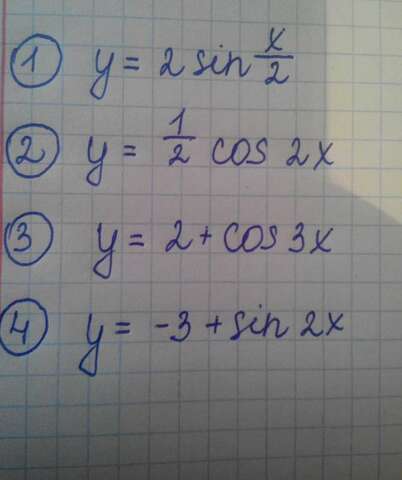 1 y = 2 sin x/2
2 y = 1/2 cos 2x
3 y = 2 + cos 3x
4 y = -3 + sin 2x